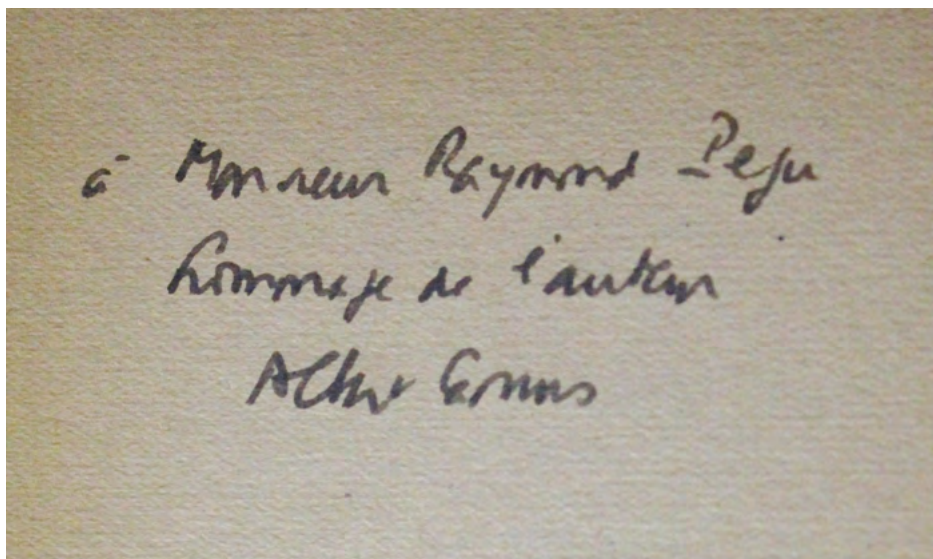 à Monsieur Raymond Peju
hommage de l'auteur
Albert Camus